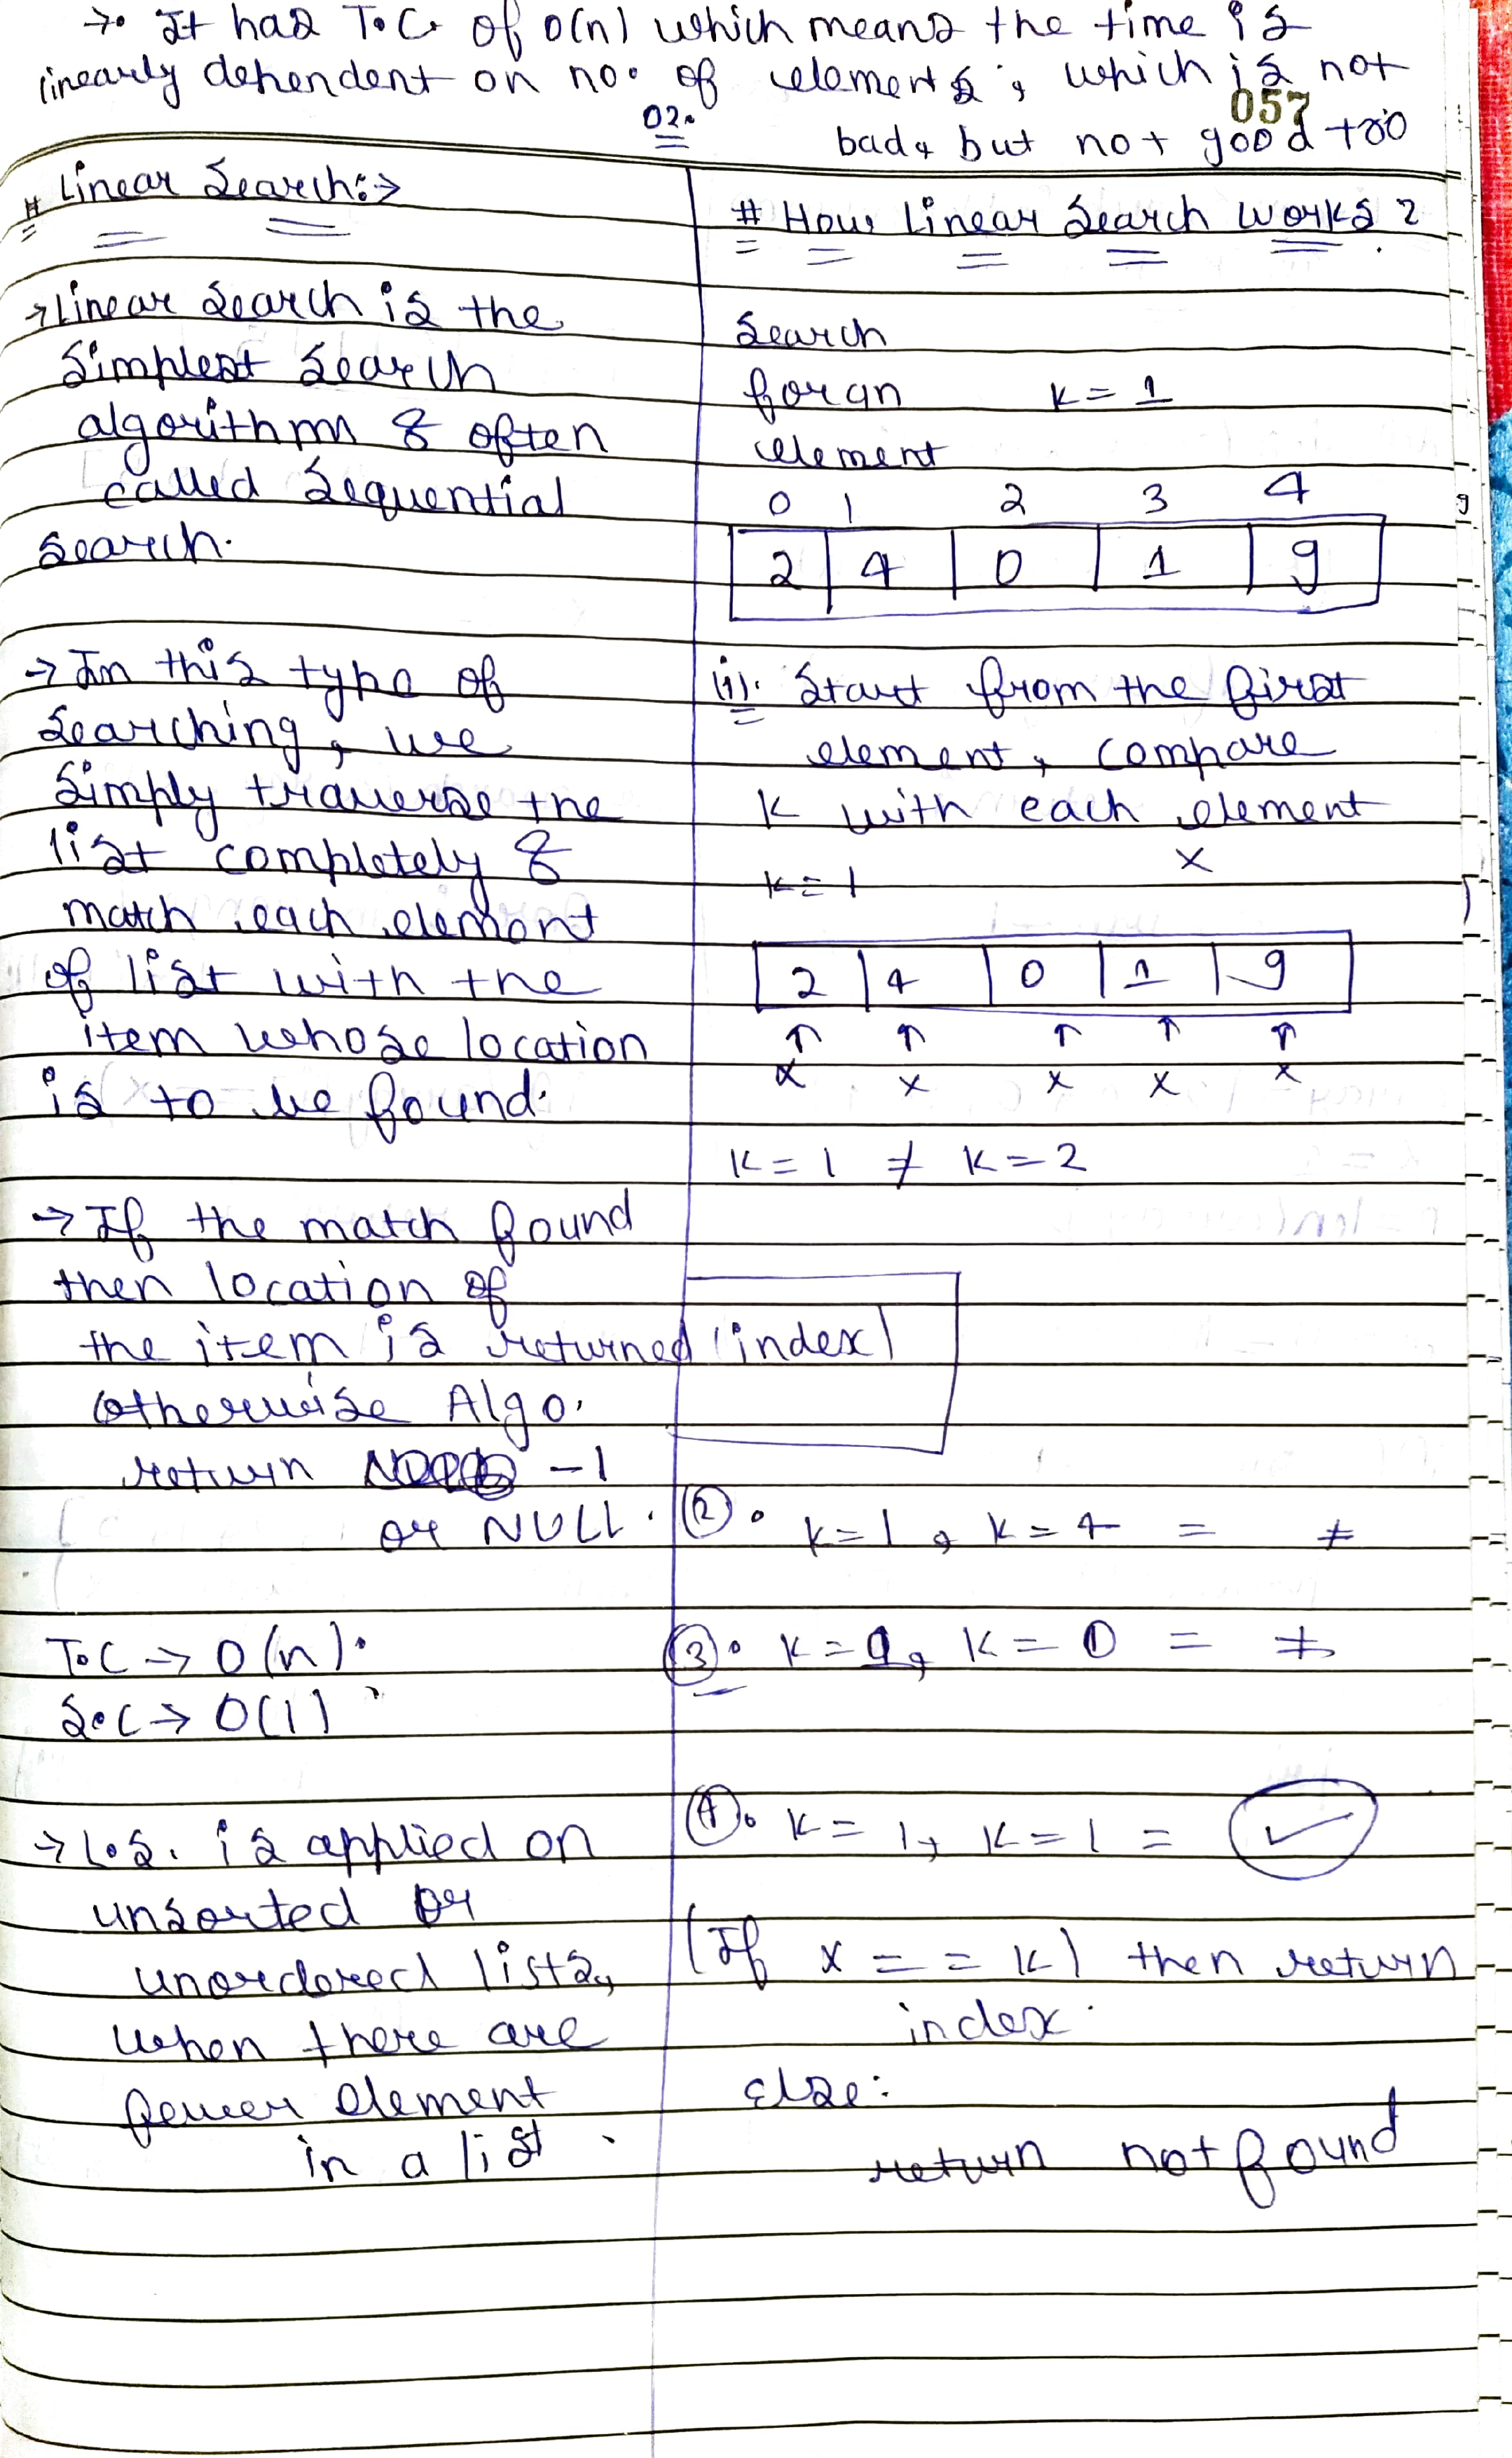 →. It has T.C. of O(n) which means the time is
linearly dependent on no. of elements, which is not
bad, but not good too
057
02.
# Linear Search:→
→ Linear Search is the
Simplest Search
algorithm & often
called Sequential
Search.
→ In this type of
Searching, we
Simply traverse the
list completely &
match each element
of list with the
item whose location
is to be found.
→ If the match found
then location of
the item is returned (index)
Otherwise Algo.
return -1
or NULL.
T.C → O(n).
S.C → O(1)
→ L.S. is applied on
unsorted or
unordered lists,
when there are
fewer element
in a list.
# How Linear Search Works?
Search
for an K = 1
element
0 1 2 3 4
2 4 0 1 9
(1). Start from the first
element, compare
K with each element
x
K = 1
2 4 0 1 9
↑ ↑ ↑ ↑ ↑
x x x x x
K = 1 ≠ K = 2
(2). K = 1, K = 4 = ≠
(3). K = 1, K = 0 = ≠
(4). K = 1, K = 1 = ✓
(If x = = K) then return
index.
Else:
return not found